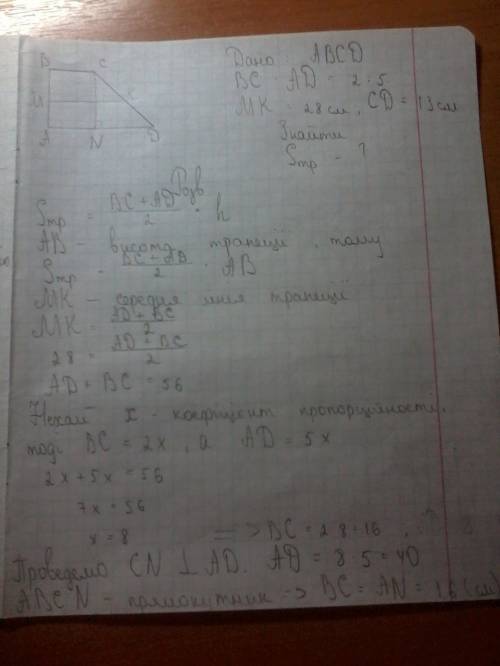 B C
Дано: ABCD
BC : AD = 2 : 5
M K
MK = 28 см, CD = 13 см
A N D
Знайти
Sтр - ?
Розв
Sтр = BC + AD / 2 · h
AB - висота трапеції, тому
Sтр = BC + AD / 2 · AB
MK - середня лінія трапеції
MK = AD + BC / 2
28 = AD + BC / 2
AD + BC = 56
Нехай x - коефіцієнт пропорційності,
тоді BC = 2x, а AD = 5x
2x + 5x = 56
7x = 56
x = 8 => BC = 2·8 = 16
Проведемо CN ⊥ AD. AD = 8·5 = 40
ABCN - прямокутник => BC = AN = 16 (см)